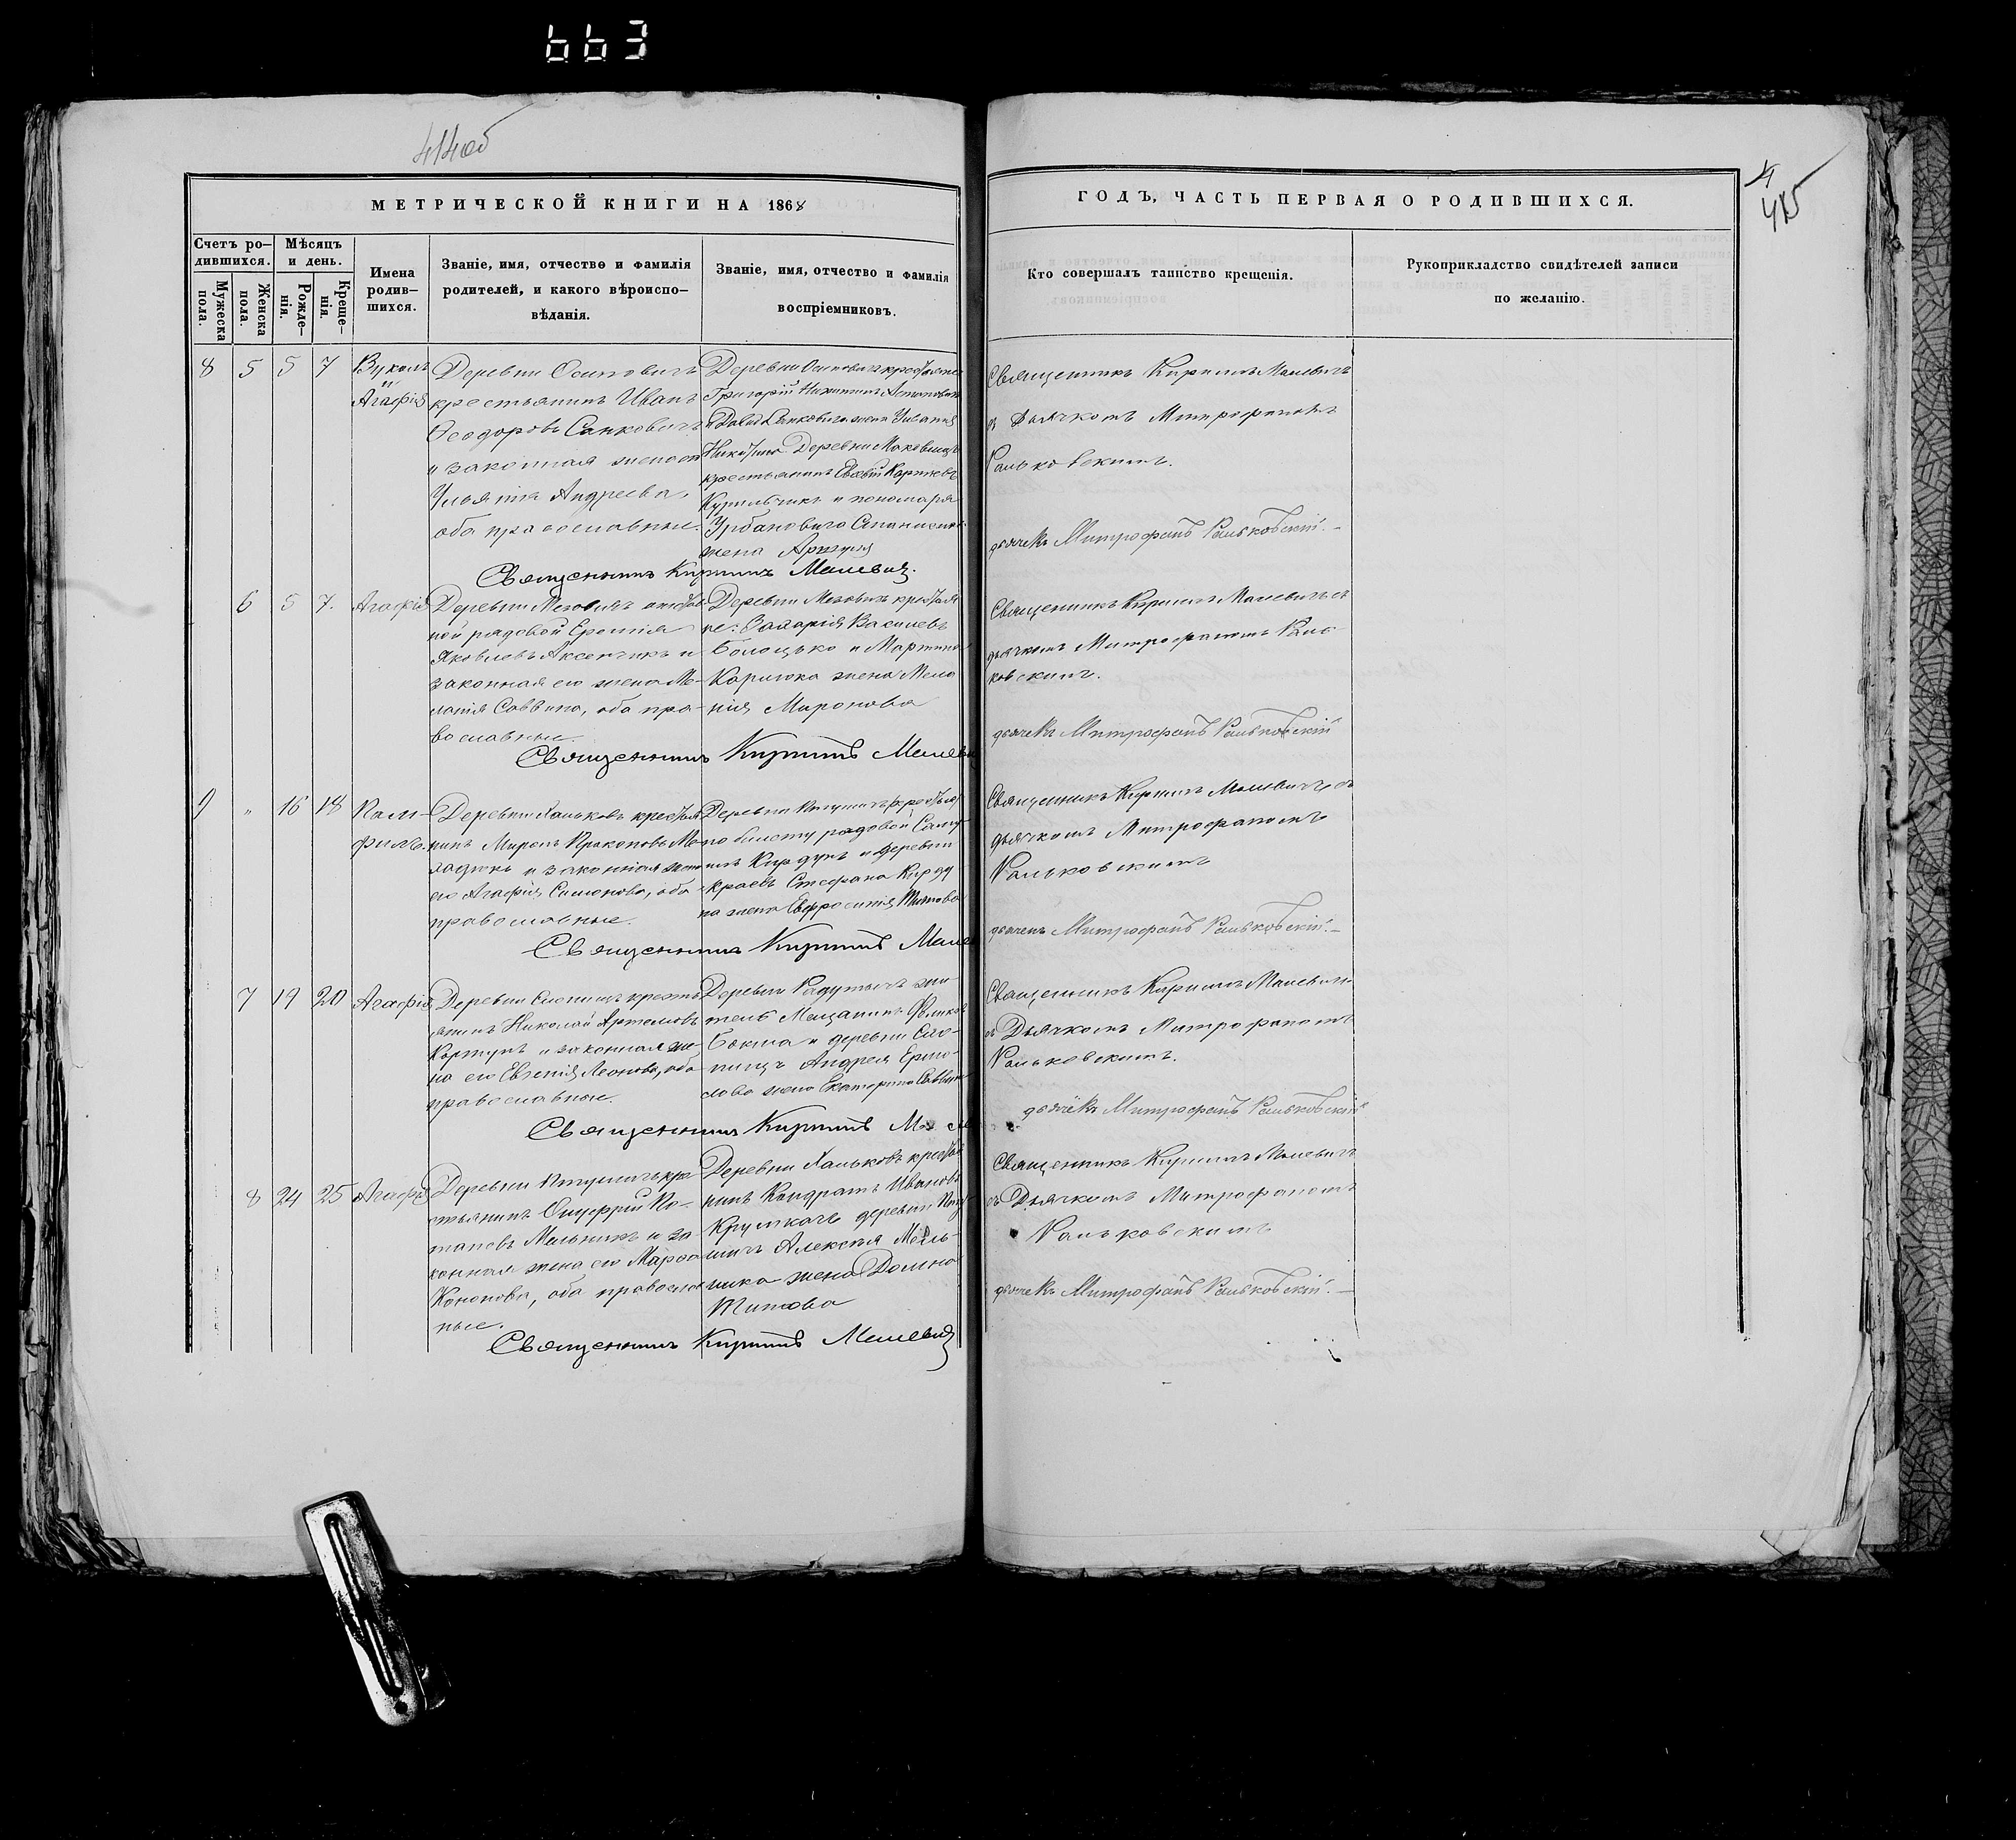 663
414об
4
415
МЕТРИЧЕСКОЙ КНИГИ НА 1868
Счетъ ро-
дившихся.
Мѣсяцъ
и день.
Мужеска
пола.
Женска
пола.
Рожде-
нія.
Креще-
нія.
Имена
родив-
шихся.
Званіе, имя, отчество и фамилія
родителей, и какого вѣроиспо-
вѣданія.
Званіе, имя, отчество и фамилія
воспріемниковъ.
8 5 5 7
Вуколъ
и
Агафія
Деревни Осиповичъ
крестьянинъ Иванъ
Ѳеодоровъ Санковичъ
и законная жена его
Ульяна Андреева,
оба православные.
Деревни Осиповичъ
Григорій
жена
Деревни Маковищъ
крестьянинъ
и пономаря
Урбановича
жена
Священникъ Кириллъ Малевич.
6 5 7.
Агафія
Деревни
рядовой
Яковлевъ Аксенчикъ и
законная его жена Ме-
ланія Саввина, оба пра-
вославные.
Деревни
не: Захарія Василевъ
и Мартина
жена Мела
нія Миронова
Священникъ Кириллъ Малеви
9 " 16 18
Пам-
филъ.
Деревни Ханьковъ крестья
нинъ Миронъ Прокоповъ
и законная жена
его Агафія Симонова, оба
православные.
Деревни
по билету рядовой
Кирдунъ и деревни
Стефана Кирду
на жена Евфросинія Титова
Священникъ Кириллъ Мале
7 19 20
Агафія
Деревни крестъ
янинъ Николай Артемовъ
и законная же
на его Евгенія Леонова, оба
православные.
Деревни жи
тель Мещанинъ
и деревни
Андрея Ермо-
лова жена Екатерина Саввина
Священникъ Кириллъ
8 24 25
Агафія
Деревни кре
стьянинъ Онуфрій По-
таповъ Мельникъ и за
конная жена его Марѳа
Кононова, оба православ
ные.
Деревни Ханьковъ крестья
нинъ Кондратъ Ивановъ
деревни
Алексѣя Мель-
ника жена Домна
Титова
Священникъ Кириллъ Малевич
ГОДЪ, ЧАСТЬ ПЕРВАЯ О РОДИВШИХСЯ.
Кто совершалъ таинство крещенія.
Рукоприкладство свидѣтелей записи
по желанію.
Священникъ Кириллъ Малевичъ
съ Дьячкомъ Митрофаномъ
Раньковскимъ.
дьячекъ Митрофанъ Раньковскій.—
Священникъ Кириллъ Малевичъ съ
дьячкомъ Митрофаномъ Рань
ковскимъ.
дьячекъ Митрофанъ Раньковскій
Священникъ Кириллъ Малевичъ съ
дьячкомъ Митрофаномъ
Раньковскимъ
дьячекъ Митрофанъ Раньковскій.—
Священникъ Кириллъ Малевичъ
съ Дьячкомъ Митрофаномъ
Раньковскимъ.
дьячекъ Митрофанъ Раньковскій
Священникъ Кириллъ Малевичъ
съ Дьячкомъ Митрофаномъ
Раньковскимъ
дьячекъ Митрофанъ Раньковскій.—